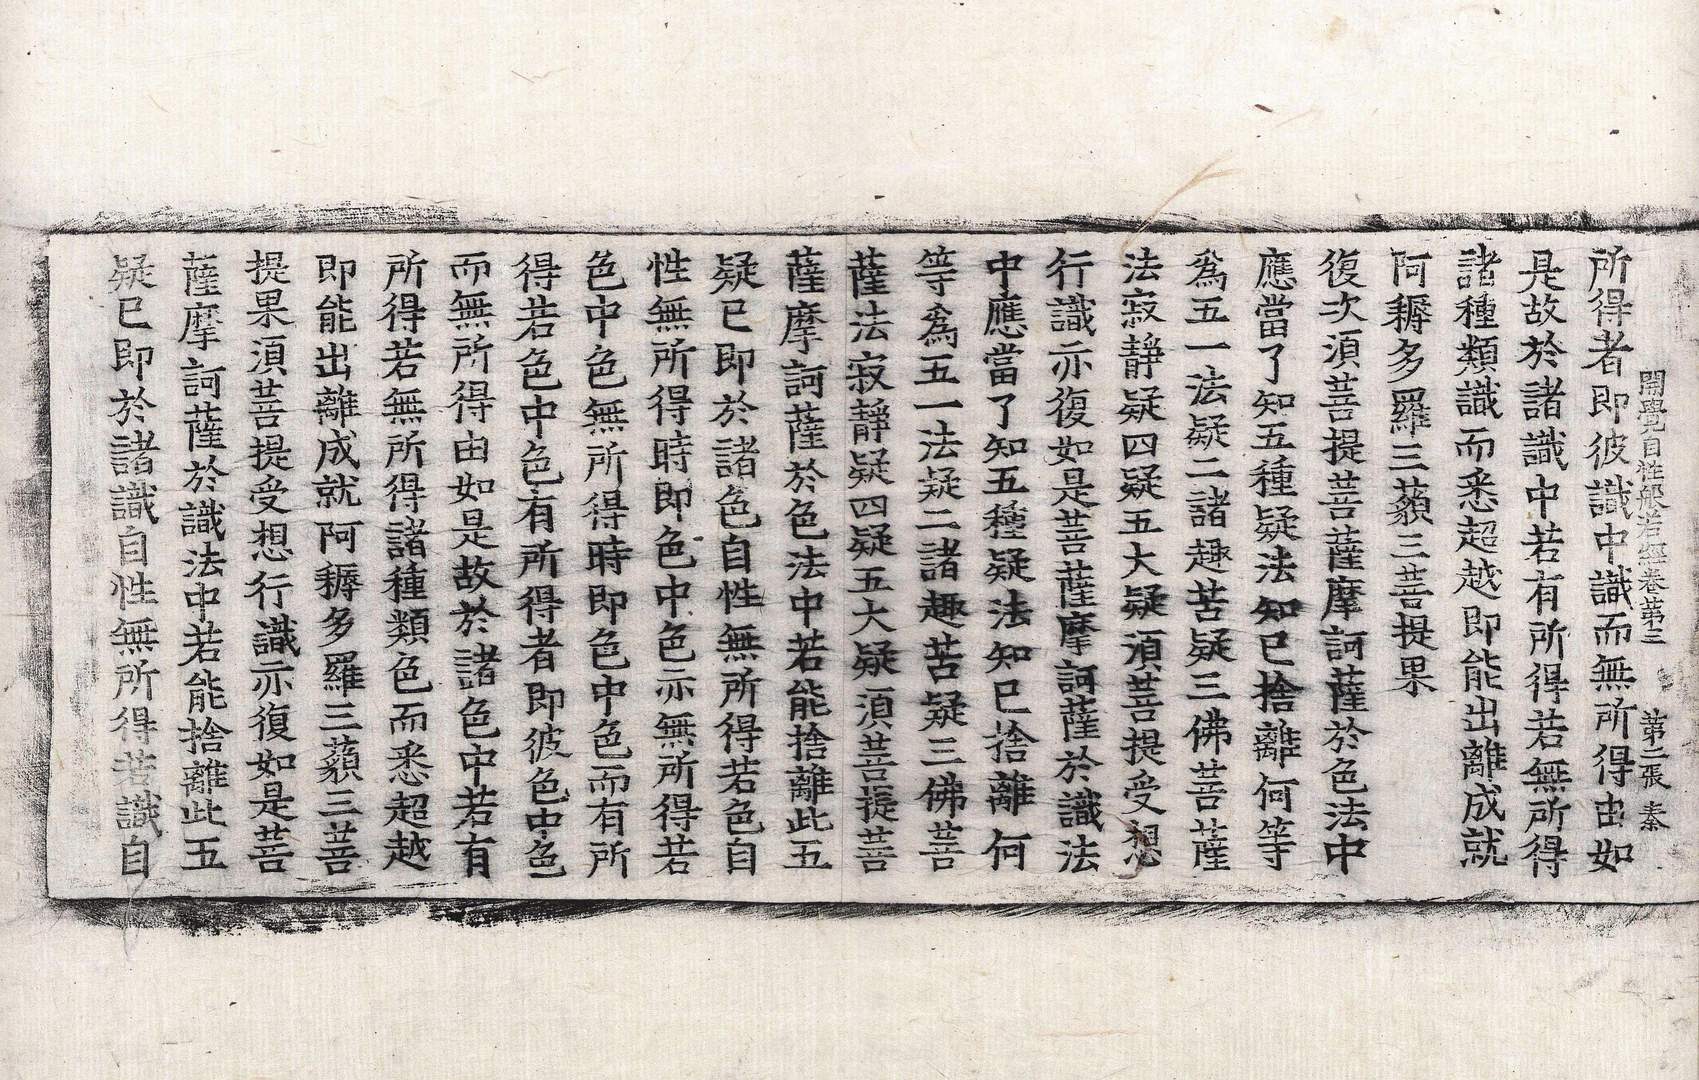 開覺自性般若經卷第三 第二張 秦
所得者即彼識中識而無所得由如
是故於諸識中若有所得若無所得
諸種類識而悉超越即能出離成就
阿耨多羅三藐三菩提果
復次湏菩提菩薩摩訶薩於色法中
應當了知五種疑法知已捨離何等
爲五一法疑二諸趣苦疑三佛菩薩
法寂靜疑四疑五大疑湏菩提受想
行識亦復如是菩薩摩訶薩於識法
中應當了知五種疑法知已捨離何
等爲五一法疑二諸趣苦疑三佛菩
薩法寂靜疑四疑五大疑湏菩提菩
薩摩訶薩於色法中若能捨離此五
疑已即於諸色自性無所得若色自
性無所得時即色中色亦無所得若
色中色無所得時即色中色而有所
得若色中色有所得者即彼色中色
而無所得由如是故於諸色中若有
所得若無所得諸種類色而悉超越
即能出離成就阿耨多羅三藐三菩
提果湏菩提受想行識亦復如是菩
薩摩訶薩於識法中若能捨離此五
疑已即於諸識自性無所得若識自